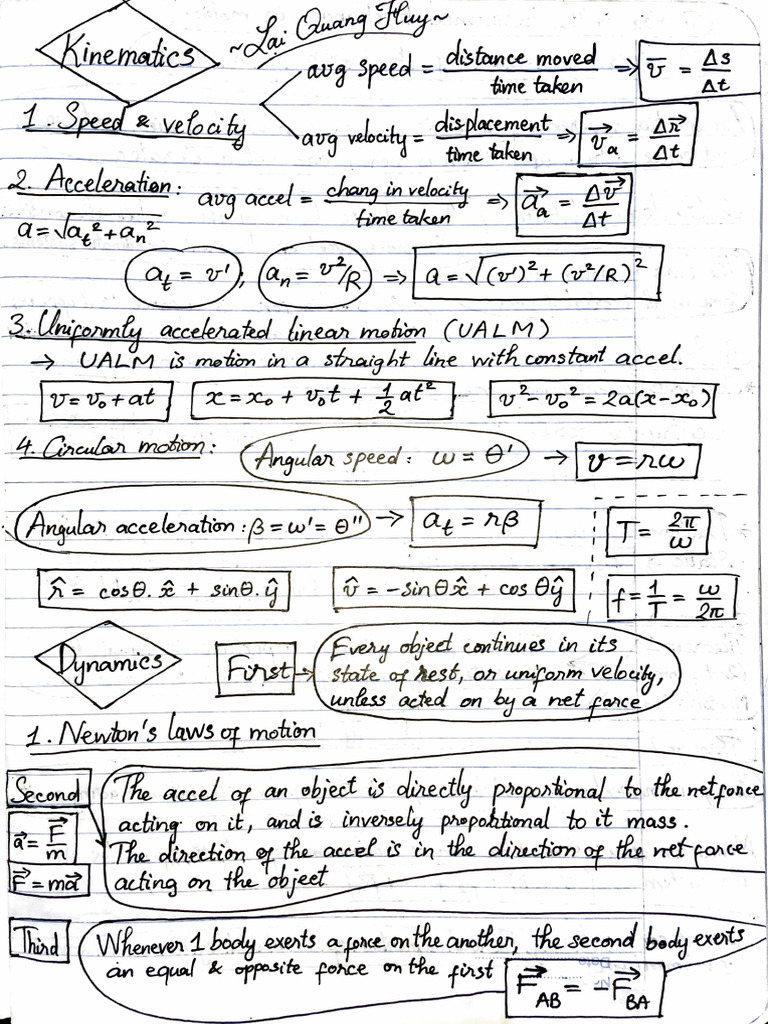 Kinematics
~Lai Quang Huy~
avg speed = distance moved / time taken ⇒ v̄ = Δs/Δt
1. Speed & velocity
avg velocity = displacement / time taken ⇒ v⃗ₐ = Δr⃗/Δt
2. Acceleration: avg accel = chang in velocity / time taken ⇒ a⃗ₐ = Δv⃗/Δt
a = √(a_t² + a_n²)
a_t = v' ; a_n = v²/R ⇒ a = √((v')² + (v²/R)²)
3. Uniformly accelerated linear motion (UALM)
→ UALM is motion in a straight line with constant accel.
v = v₀ + at x = x₀ + v₀t + 1/2 at² v² - v₀² = 2a(x - x₀)
4. Circular motion: Angular speed: ω = θ' → v = rω
Angular acceleration: β = ω' = θ'' → a_t = rβ T = 2π/ω
r̂ = cosθ. x̂ + sinθ. ŷ v̂ = -sinθx̂ + cosθŷ f = 1/T = ω/2π
Dynamics
First → Every object continues in its
state of rest, or uniform velocity,
unless acted on by a net force
1. Newton's laws of motion
Second
The accel of an object is directly proportional to the net force
acting on it, and is inversely proportional to it mass.
The direction of the accel is in the direction of the net force
acting on the object
a⃗ = F⃗/m
F⃗ = ma⃗
Third
Whenever 1 body exerts a force on the another, the second body exerts
an equal & opposite force on the first
F⃗_AB = -F⃗_BA